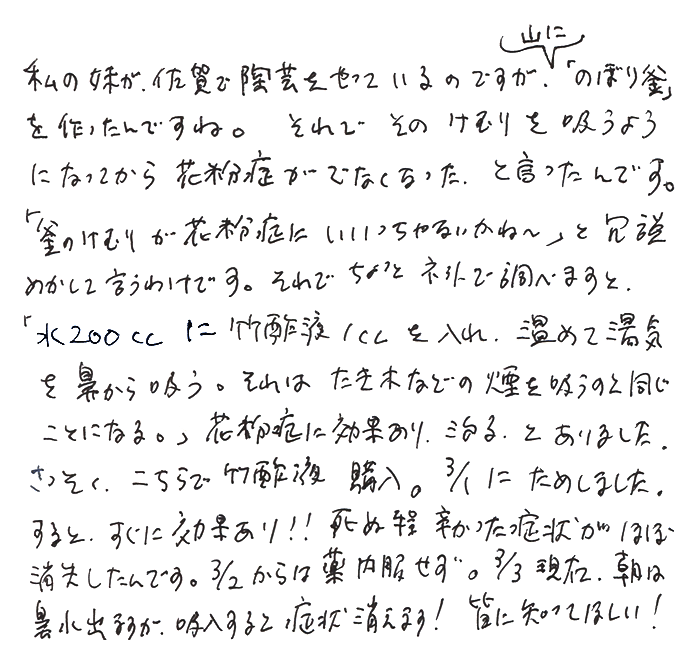 山に
私の妹が、佐賀で陶芸をやっているのですが、「のぼり釜」
を作ったんですね。それでそのけむりを吸うよう
になってから花粉症がでなくなった、と言ったんです。
「釜のけむりが花粉症にいいっちゃないかね〜」と冗談
めかして言うわけです。それでちょっとネットで調べますと、
「水200ccに竹酢液1ccを入れ、温めて湯気
を鼻から吸う。それはたき木などの煙を吸うのと同じ
ことになる。」花粉症に効果あり、治る、とありました。
さっそく、こちらで竹酢液購入。3/1にためしました。
すると、すぐに効果あり!!死ぬ程辛かった症状がほぼ
消失したんです。3/2からは薬内服せず。3/3現在、朝は
鼻水出ますが、吸入すると症状消えます!皆に知ってほしい!